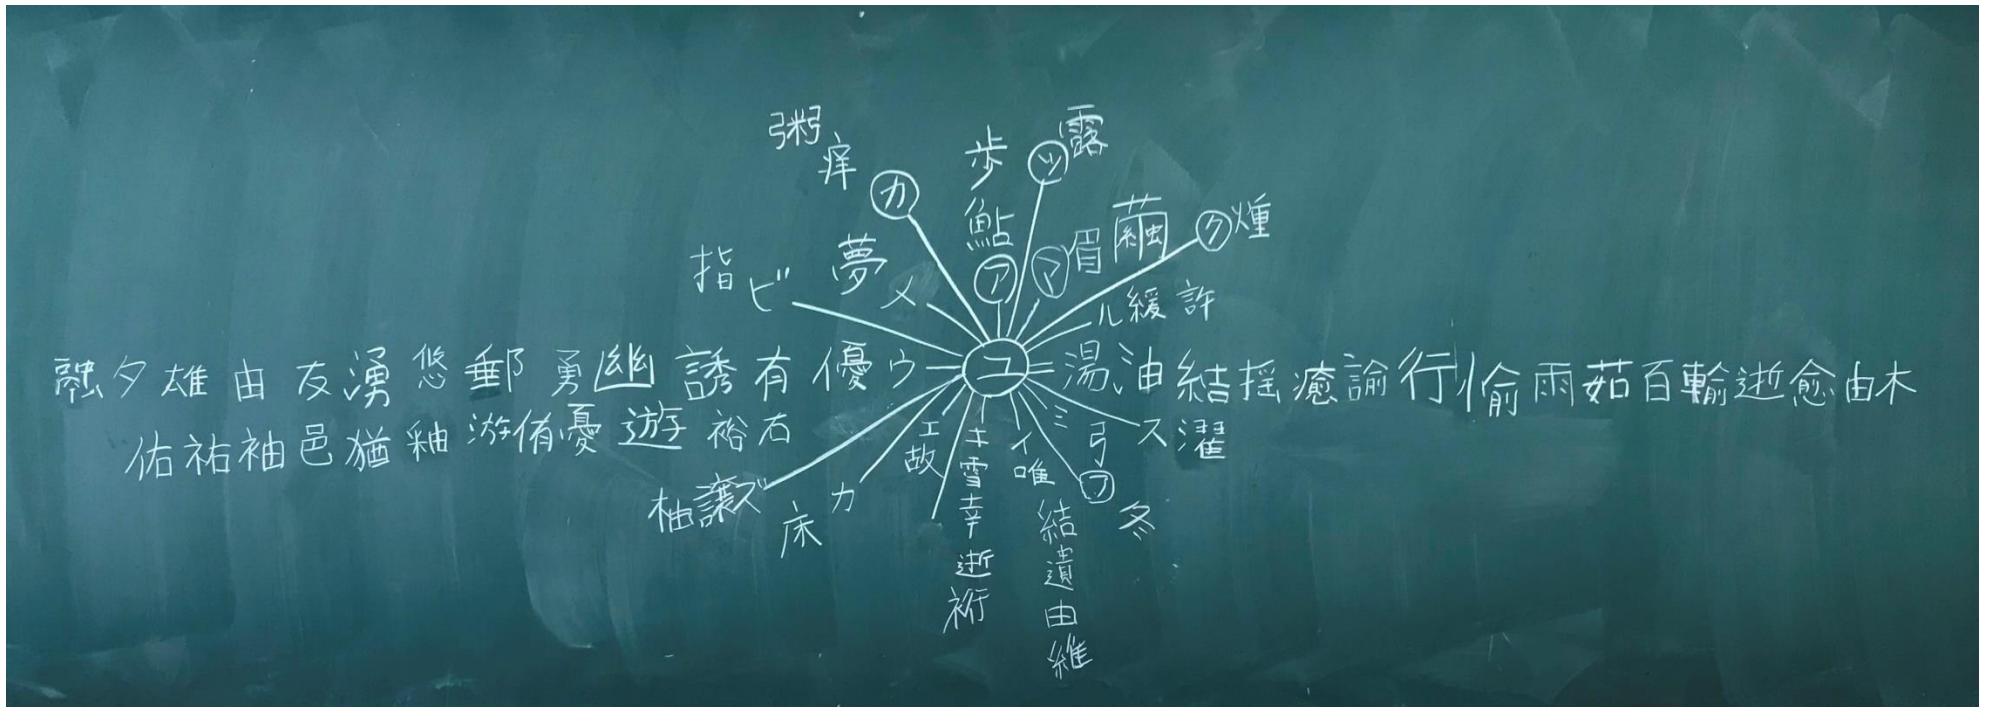 粥
痒
カ
歩
鮎
ア
ツ
露
マ
眉
繭
ク
燻
指
ビ
夢
メ
ル
緩
許
融夕雄由友湧悠郵勇幽誘有優ウ
ユ
湯油結揺癒諭行愉雨茹百輸逝愈由木
佑祐袖邑猶釉游侑憂遊裕右
柚譲ズ
床カ
エ
故
キ
雪
幸
逝
裄
イ
唯
結
遺
由
維
ミ
弓
フ
冬
ス濯